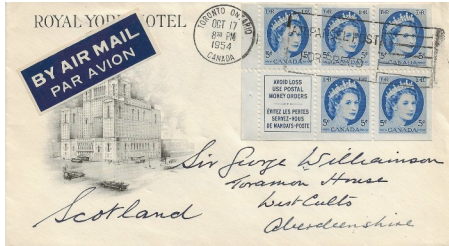 ROYAL YORK HOTEL
BY AIR MAIL
PAR AVION
TORONTO ONTARIO
OCT 17
8 PM
1954
CANADA
5¢ CANADA 5¢
AVOID LOSS
USE POSTAL
MONEY ORDERS
ÉVITEZ LES PERTES
SERVEZ-VOUS
DE MANDATS-POSTE
5¢ CANADA 5¢
Sir George Williamson
Toramon House
West Cults
Aberdeenshire
Scotland